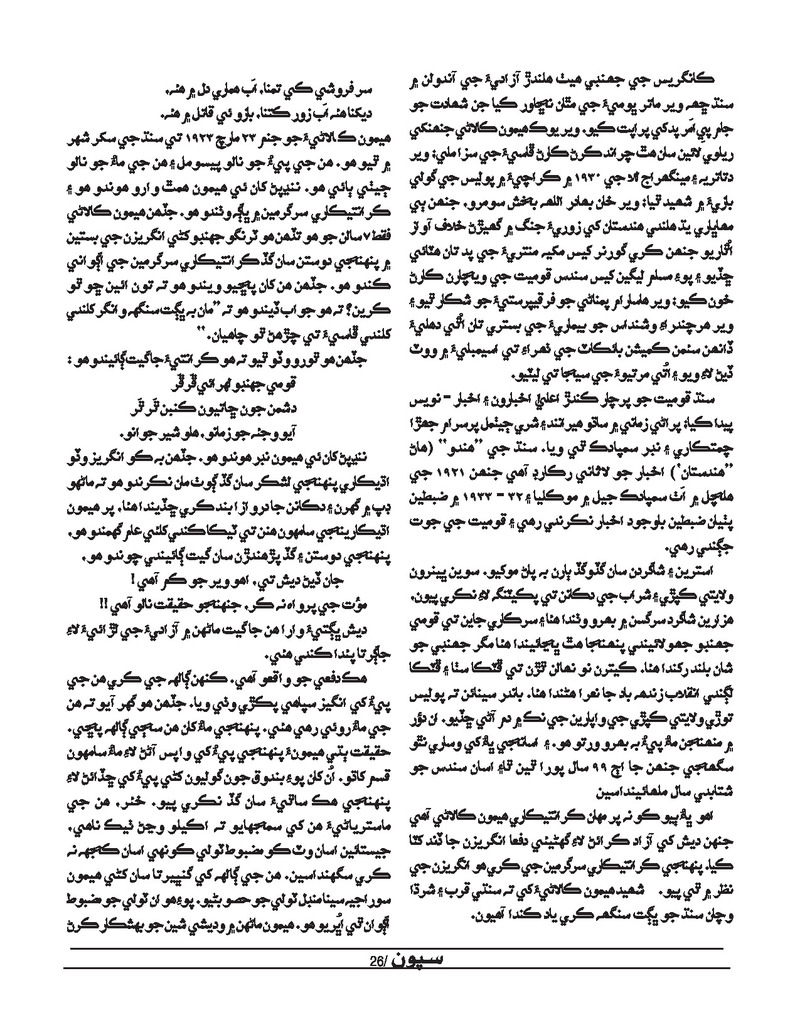 ڪانگريس جي جهنڊي هيٺ هلندڙ آزاديءَ جي آندولن ۾
سنڌ ڇهه وير ماتر ڀوميءَ جي مٿان نڇاور ڪيا جن شهادت جو
جام پي اَمر پدکي پراپت ڪيو. وير يوڪ هيمون ڪالاڻي جنهنکي
ريلوي لائين سان هٿ چراند ڪرڻ ڪارڻ ڦاسيءَ جي سزا ملي؛ وير
دتاتريه ۽ مينگهراج لا جي ۱۹۳۰ ۾ ڪراچيءَ ۾ پوليس جي گولي
بازيءَ ۾ شهيد ٿيا؛ وير خان بهادر اللهه بخش سومرو، جنهن ٻي
مهاڀاري يڌ هلندي هندستان کي زوريءَ جنگ ۾ گهيڙڻ خلاف آواز
اُٿاريو جنهن ڪري گورنر کيس مکيه منتريءَ جي پد تان هٽائي
ڇڏيو ۽ پوءِ مسلم ليگين کيس سندس قوميت جي ويچارن ڪارڻ
خون ڪيو؛ وير هاسارام پمناڻي جو فرقيپرستيءَ جو شڪار ٿيو ۽
وير هرچندراءِ وشنداس جو بيماريءَ جي بستري تان اُٿي دهليءَ
ڏانهن سئمن ڪميشن بائڪاٽ جي ٺهراءَ تي اسيمبليءَ ۾ ووٽ
ڏيڻ لاءِ ويو ۽ اُتي مرتيوءَ جي سيڄا تي ليٽيو.
سنڌ قوميت جو پرچار ڪندڙ اعليٰ اخبارون ۽ اخبار - نويس
پيدا ڪيا؛ پراڻي زماني ۾ ساڌو هيرانند ۽ شري چيٺمل پرسرام جهڙا
چمتڪاري ۽ نڊر سمپادڪ ٿي ويا. سنڌ جي ’’هندو‘‘ (هاڻ
’’هندستان‘) اخبار جو لاثاني رڪارڊ آهي جنهن ۱۹۲۱ جي
هلچل ۾ اَٺ سمپادڪ جيل ۾ موڪليا ۽ ۳۲ - ۱۹۳۳ ۾ ضبطين
پٺيان ضبطين باوجود اخبار نڪرندي رهي ۽ قوميت جي جوت
جڳندي رهي.
استرين ۽ شاگردن سان گڏوگڏ ٻارن به پاڻ موکيو. سوين ڀينرون
ولايتي ڪپڙي ۽ شراب جي دڪانن تي پڪيٽنگ لاءِ نڪري پيون.
هزارين شاگرد سرگسن ۾ بهرو وٺندا هئا ۽ سرڪاري جاين تي قومي
جهنڊو جهولائيندي پنهنجا هٿ ڀڃائيندا هئا مگر جهنڊي جو
شان بلند رکندا هئا. ڪيترن نو نهالن ٿڙن تي ڦٽڪا سٺا ۽ ڦٽڪا
لڳندي انقلاب زندهه باد جا نعرا هڻندا هئا. باندر سينائن ته پوليس
توڙي ولايتي ڪپڙي جي واپارين جي نڪ ۾ دم آڻي ڇڏيو. ان دؤر
۾ منهنجن ماءُ پيءُ به بهرو ورتو هو. ۽ اسانجي ڀاءُ کي وساري نٿو
سگهجي جنهن جا اڄ ۹۹ سال پورا ٿين ٿا ۽ اسان سندس جو
شتابدي سال ملهائينداسين
اهو ڀاءُ ٻيو ڪو نه پر مهان ڪرانتيڪاري هيمون ڪالاڻي آهي
جنهن ديش کي آزاد ڪرائڻ لاءِ گهڻيئي دفعا انگريزن جا ڏند کٽا
ڪيا. پنهنجي ڪرانتيڪاري سرگرمين جي ڪري هو انگريزن جي
نظر ۾ ٿي پيو. شهيد هيمون ڪالاڻيءَ کي ته سنڌي قرب ۽ شرڌا
وچان سنڌ جو ڀڳت سنگهه ڪري ياد ڪندا آهيون.
سر فروشي ڪي تمنا، اَب هماري دل ۾ هئه،
ديکنا هئه اَب زور ڪتنا، بازو ئي قاتل ۾ هئه.
هيمون ڪالاڻيءَ جو جنم ۲۳ مارچ ۱۹۲۳ تي سنڌ جي سکر شهر
۾ ٿيو هو. هن جي پيءُ جو نالو پيسومل ۽ هن جي ماءُ جو نالو
جيٺي ٻائي هو. ننڍپڻ کان ئي هيمون همٿ وارو هوندو هو ۽
ڪرانتيڪاري سرگرمين ۾ ڀاڳ وٺندو هو. جڏهن هيمون ڪالاڻي
فقط ۷ سالن جو هو تڏهن هو ترنگو جهنڊو کڻي انگريزن جي بستين
۾ پنهنجي دوستن سان گڏ ڪرانتيڪاري سرگرمين جي اڳواڻي
ڪندو هو. جڏهن هن کان پڇيو ويندو هو ته تون ائين ڇو ٿو
ڪرين؟ ته هو جواب ڏيندو هو ته ’’مان به ڀڳت سنگهه وانگر کلندي
کلندي ڦاسيءَ تي چڙهڻ ٿو چاهيان.‘‘
جڏهن هو ٿورو وڏو ٿيو ته هو ڪرانتيءَ جا گيت ڳائيندو هو :
قومي جهنڊو ڦهرائي ڦَر ڦَر
دشمن جون ڇاتيون ڪنبن ٿَر ٿَر
آيو وڃئه جو زمانو، هلو شير جوانو.
ننڍپڻ کان ئي هيمون نڊر هوندو هو. جڏهن به ڪو انگريز وڏو
اڌيڪاري پنهنجي لشڪر سان گڏ ڳوٺ مان نڪرندو هو ته ماڻهو
ڊپ ۾ گهرن ۽ دڪانن جا دروازا بند ڪري ڇڏيندا هئا، پر هيمون
اڌيڪارينجي سامهون هنن تي ٽيڪا ڪندي کلئي عام گهمندو هو.
پنهنجي دوستن ۽ گڏ پڙهندڙن سان گيت ڳائيندي چوندو هو.
جان ڏيڻ ديش تي، اهو وير جو ڪم آهي!
مؤت جي پرواه نه ڪر، جنهنجو حقيقت نالو آهي !!
ديش ڀڳتيءَ وارا هن جا گيت ماڻهن ۾ آزاديءَ جي لڙائيءَ لاءِ
جاڳرتا پئدا ڪندي هئي.
هڪ دفعي جو واقعو آهي. ڪنهن ڳالهه جي ڪري هن جي
پيءُ کي انگيز سپاهي پڪڙي وٺي ويا. جڏهن هو گهر آيو ته هن
جي ماءُ روئي رهي هئي. پنهنجي ماءُ کان هن سڄي ڳالهه پڇي.
حقيقت ٻڌي هيمونءَ پنهنجي پيءُ کي واپس آڻڻ لاءِ ماءُ سامهون
قسم کاڌو. اُن کان پوءِ بندوق جون گوليون کڻي پيءُ کي ڇڏائڻ لاءِ
پنهنجي هڪ ساٿيءَ سان گڏ نڪري پيو. خير، هن جي
ماسترياڻيءَ هن کي سمجهايو ته اڪيلو وڃڻ ٺيڪ ناهي،
جيستائين اسان وٽ ڪو مضبوط ٽولي ڪونهي اسان ڪجهه نه
ڪري سگهنداسين. هن جي ڳالهه کي گنڀيرتا سان کڻي هيمون
سوراجيه سينا منڊل ٽولي جو حصو بڻيو. پوءِ هو ان ٽولي جو مضبوط
اڳواڻ ٿي اُڀريو هو. هيمون ماڻهن ۾ وديشي شين جو بهشڪار ڪرڻ
سپون /26